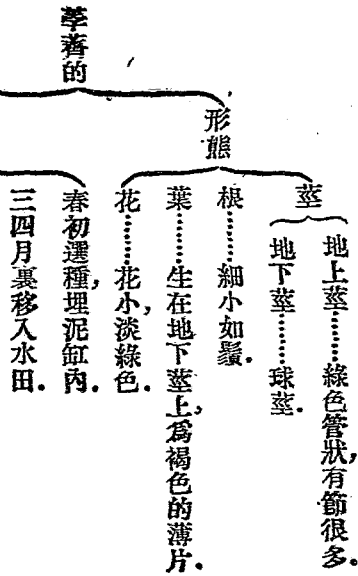 荸薺的
形態
莖
地上莖………綠色管狀,有節很多.
地下莖………球莖.
根………細小如鬚.
葉………生在地下莖上,爲褐色的薄片.
花………花小,淡綠色.
春初選種,埋泥缸內.
三四月裏移入水田.